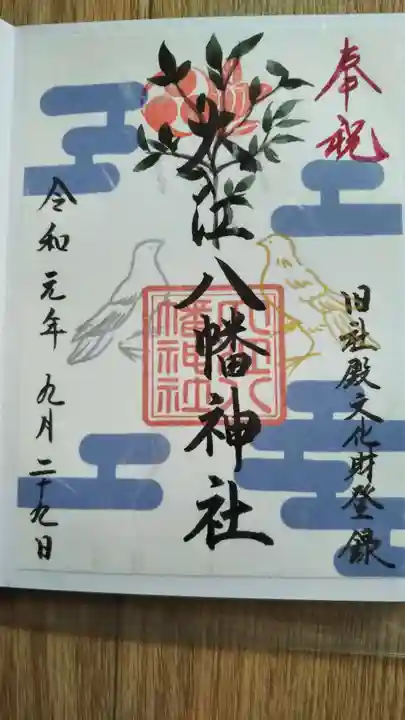 奉祝
旧社殿文化財登録
大江八幡神社
大江八幡神社
令和元年九月二十九日